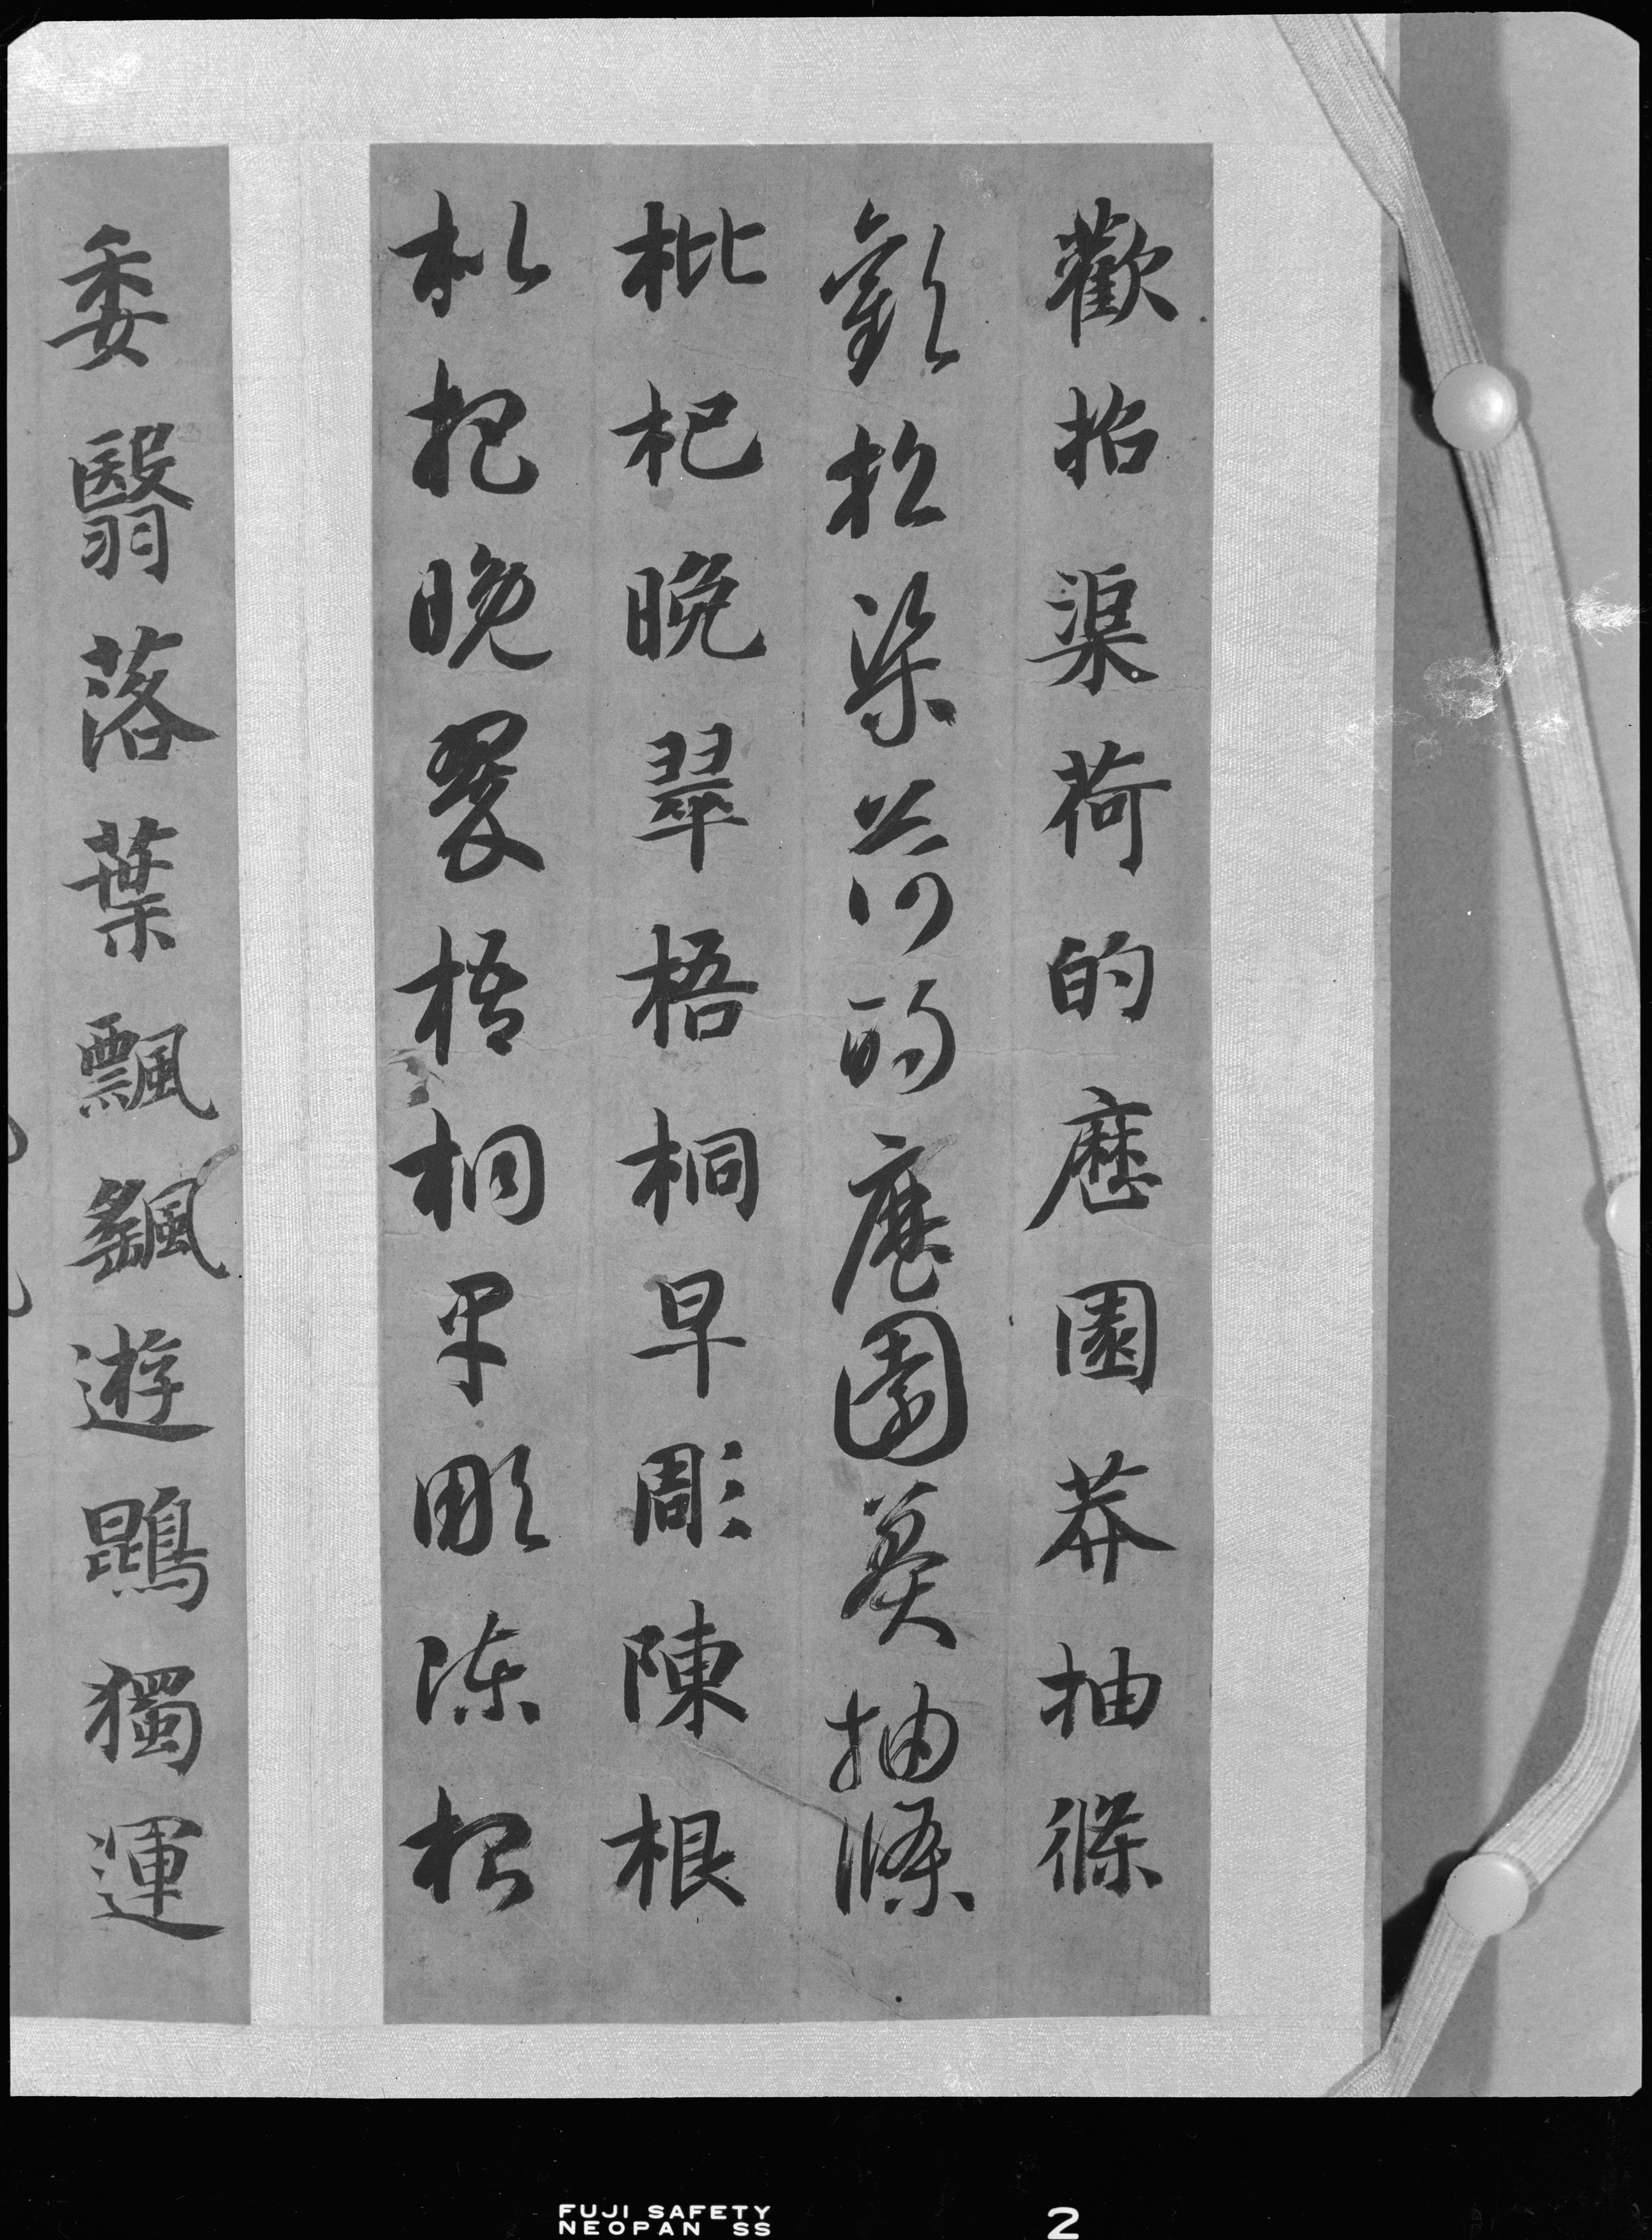 歡招渠荷的歷園莽抽條
歡招渠荷的歷園莽抽條
枇杷晚翠梧桐早彫陳根
枇杷晚翠梧桐早彫陳根
委翳落葉飄颻遊鵾獨運
FUJI SAFETY
NEOPAN SS
2